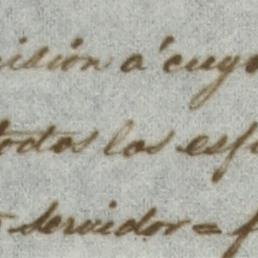 isión á cuyo
todos los esf
servidor = f